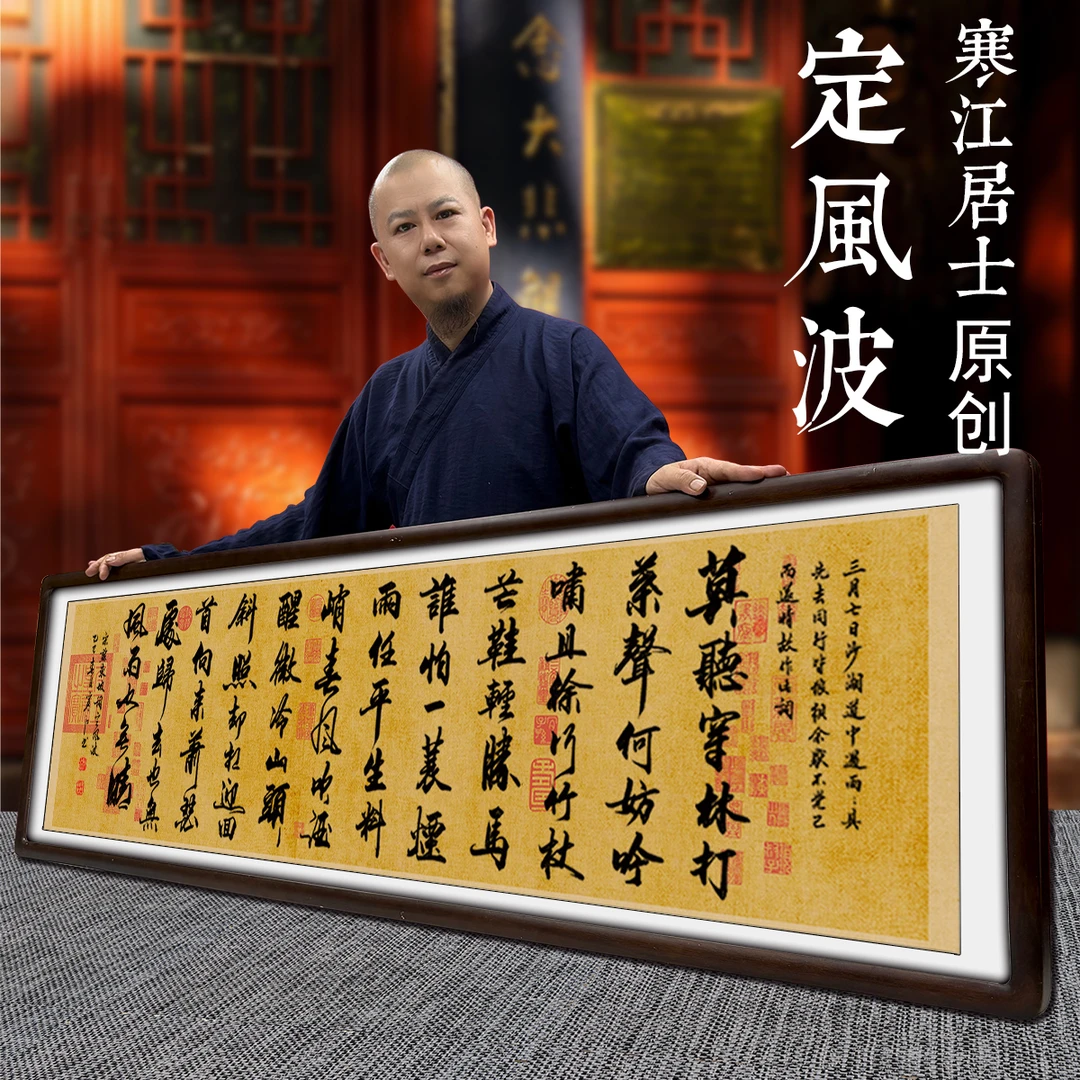 寒江居士 原创
定風波
三月七日沙湖道中遇雨〻具
先去同行皆狼狽余獨不覺已
而遂晴故作此詞
莫聽穿林打
葉聲何妨吟
嘯且徐行竹杖
芒鞋輕勝馬
誰怕一蓑煙
雨任平生料
峭春風吹酒
醒微冷山頭
斜照却相迎回
首向來蕭瑟
處歸去也無
風雨也無晴
宋蘇東坡詞定風波